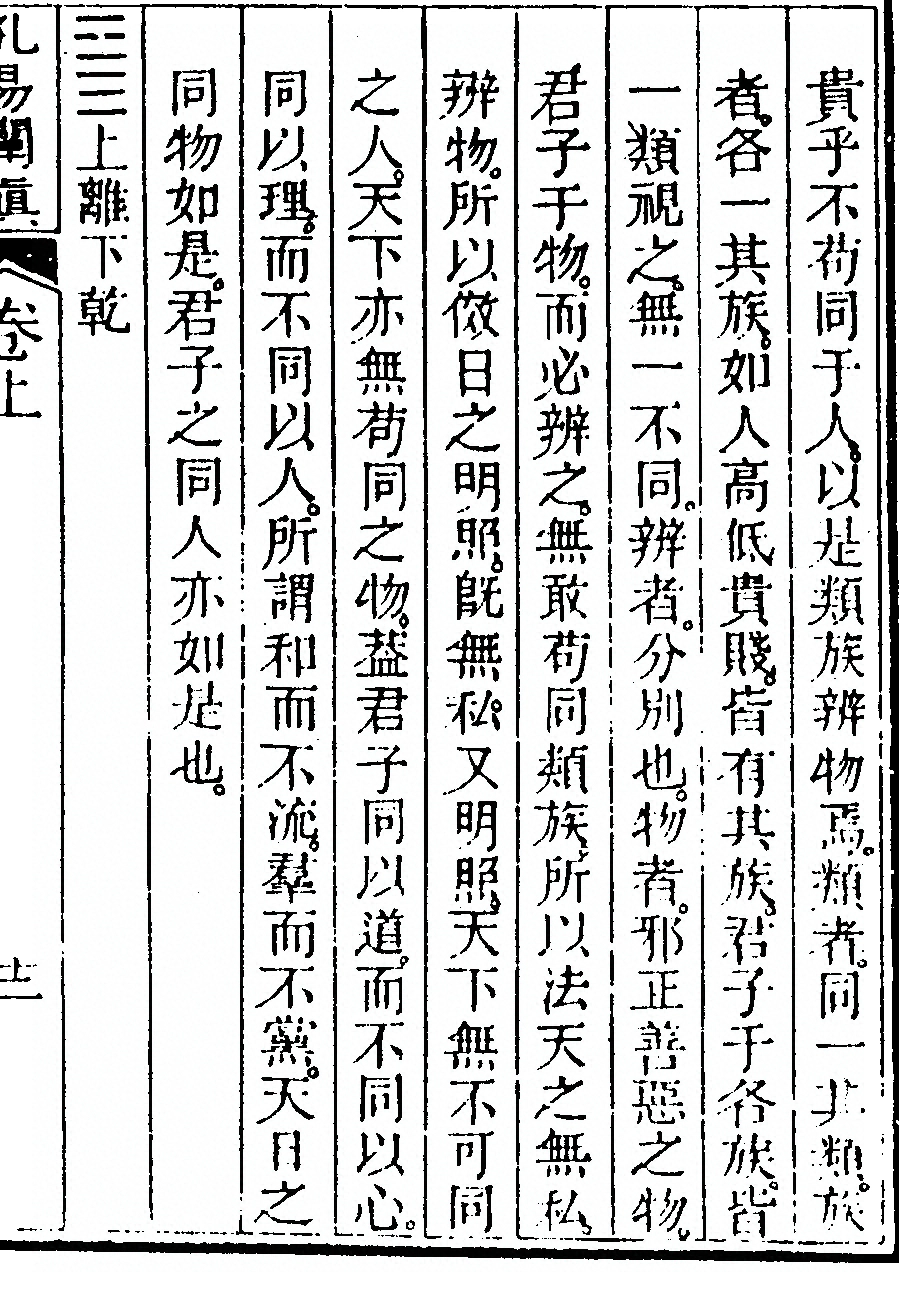 貴乎不苟同于人。以是類族辨物焉。類者。同一其類。族
者。各一其族。如人高低貴賤。皆有其族。君子于各族。皆
一類視之。無一不同。辨者。分別也。物者。邪正善惡之物。
君子于物。而必辨之。無敢苟同類族。所以法天之無私。
辨物。所以倣日之明照。旣無私。又明照。天下無不可同
之人。天下亦無苟同之物。葢君子同以道。而不同以心。
同以理。而不同以人。所謂和而不流。羣而不黨。天日之
同物如是。君子之同人亦如是也。
䷍上離下乾
孔易闡眞 卷上 十二